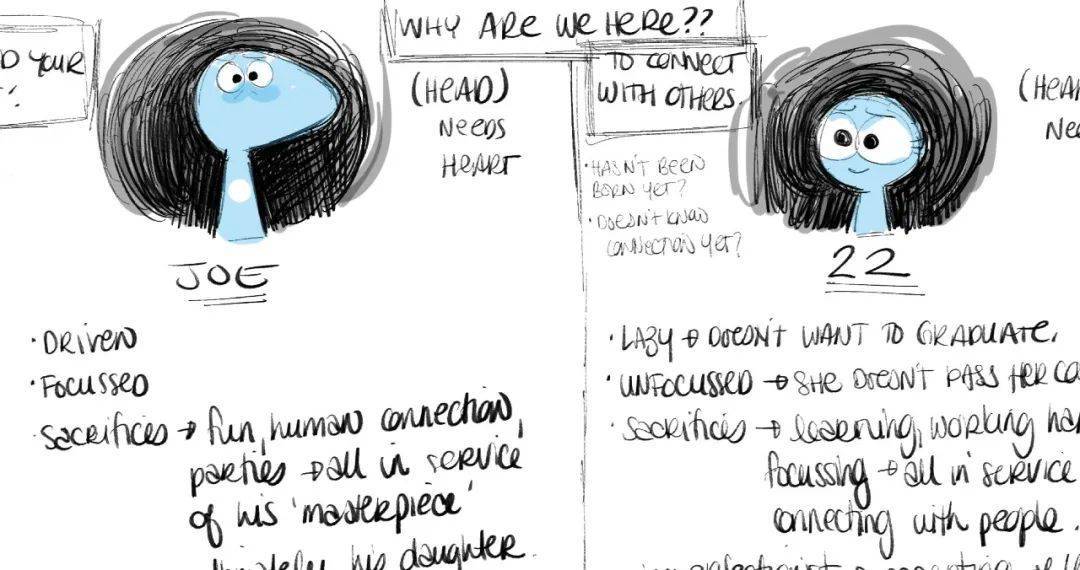 WHY ARE WE HERE??
D YOUR
(HEAD)
NEEDS
HEART
JOE
• DRIVEN
• FOCUSSED
• SACRIFICES → fun, human connection,
parties → all in service
of his 'masterpiece'
his daughter.
TO CONNECT
WITH OTHERS.
• HASN'T BEEN
BORN YET?
• DOESN'T KNOW
CONNECTION YET?
22
(HEA
NE
• LAZY → DOESN'T WANT TO GRADUATE.
• UNFOCUSSED → SHE DOESN'T PASS HER
• SACRIFICES → learning, working
focussing → all in service
connecting with people.